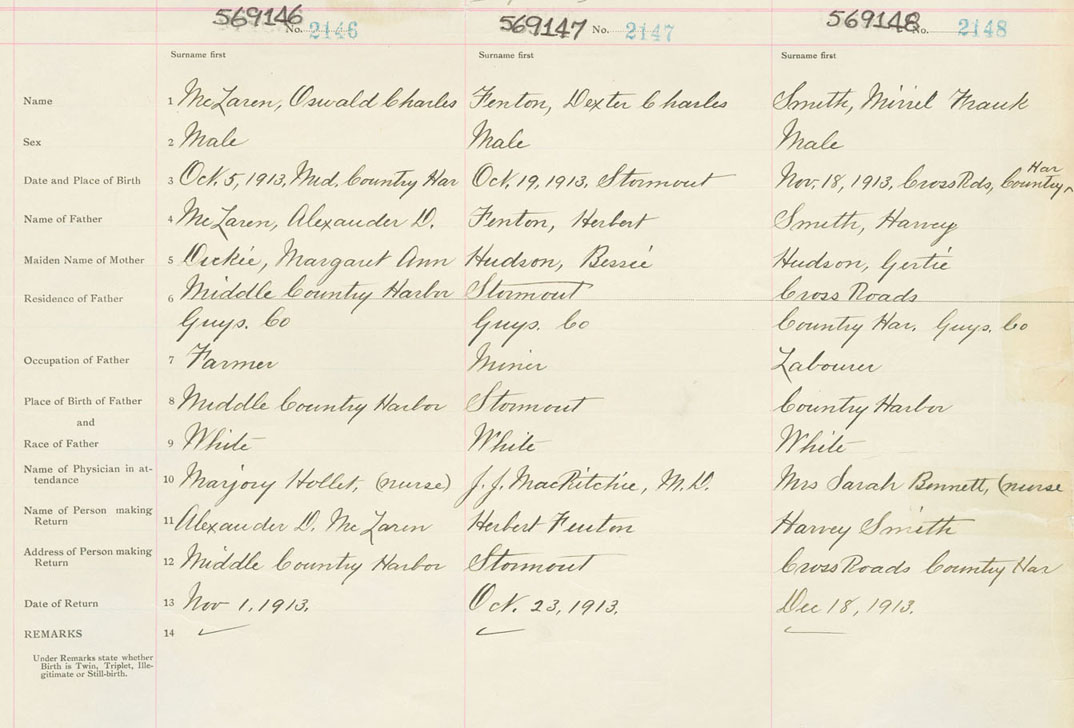 569146 No. 2146 569147 No. 2147 569148 No. 2148
Surname first Surname first Surname first
Name 1 McLaren, Oswald Charles Fenton, Dexter Charles Smith, Mirrel Frank
Sex 2 Male Male Male
Date and Place of Birth 3 Oct. 5, 1913, Mid. Country Har Oct. 19, 1913, Stormout Nov. 18, 1913, Cross Rds, Country Har
Name of Father 4 McLaren, Alexander D. Fenton, Herbert Smith, Harvey
Maiden Name of Mother 5 Dickie, Margaret Ann Hudson, Bessie Hudson, Gertie
Residence of Father 6 Middle Country Harbor Stormout Cross Roads
Guys. Co Guys. Co Country Har. Guys. Co
Occupation of Father 7 Farmer Miner Labourer
Place of Birth of Father 8 Middle Country Harbor Stormout Country Harbor
and
Race of Father 9 White White White
Name of Physician in at-
tendance 10 Marjory Hollet, (nurse) J. J. MacRitchie, M.D. Mrs Sarah Bennett, (nurse
Name of Person making
Return 11 Alexander D. McLaren Herbert Fenton Harvey Smith
Address of Person making
Return 12 Middle Country Harbor Stormout Cross Roads Country Har
Date of Return 13 Nov 1, 1913. Oct. 23, 1913. Dec 18, 1913.
REMARKS 14
Under Remarks state whether
Birth is Twin, Triplet, Ille-
gitimate or Still-birth.